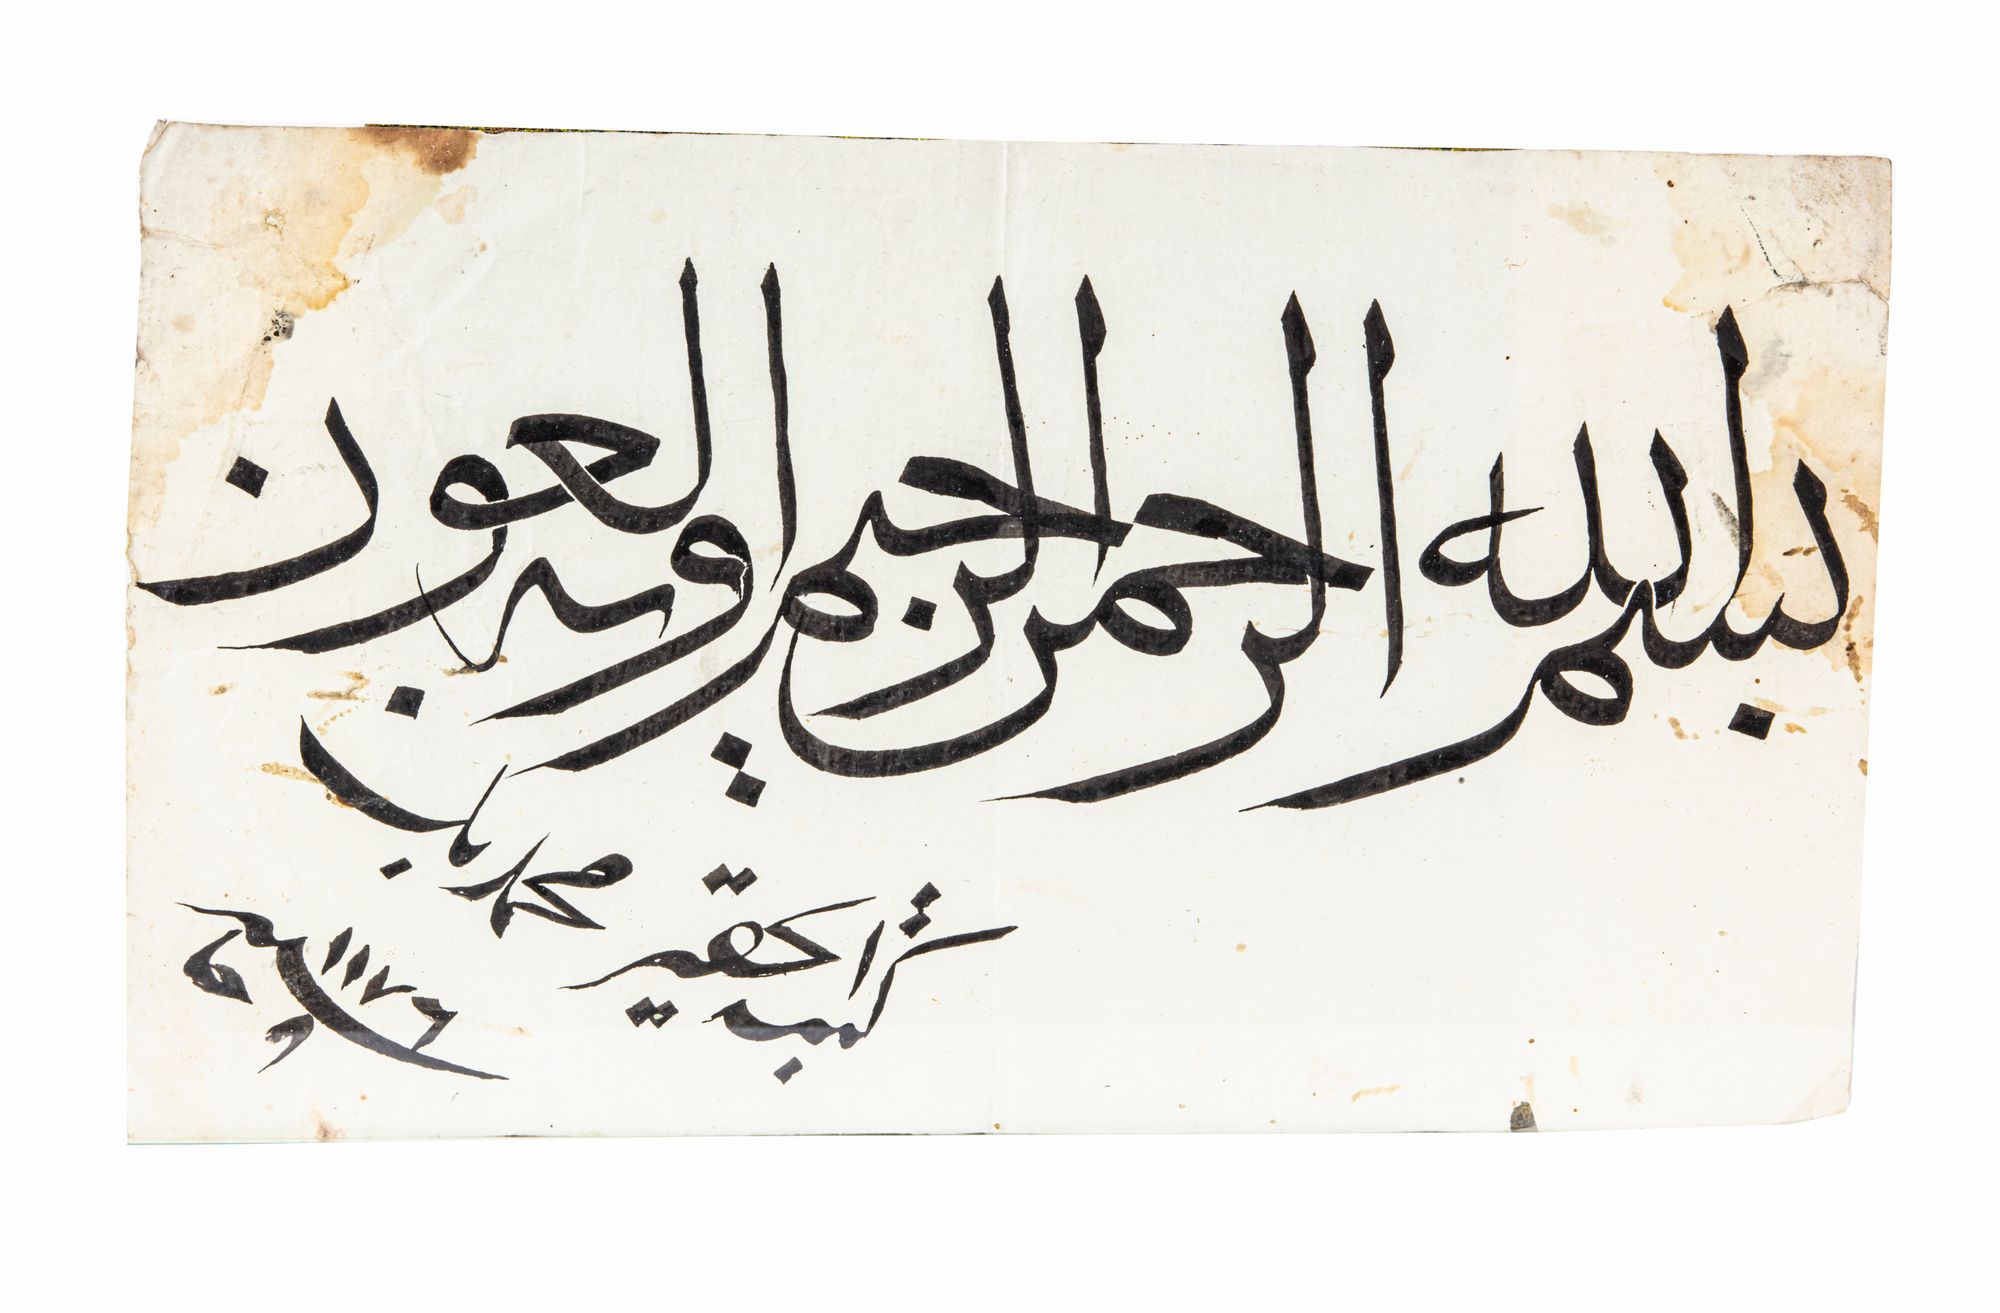 بسم الله الرحمن الرحيم وبه العون
كتبه الحقير
محمد
سنة ١١٧٦